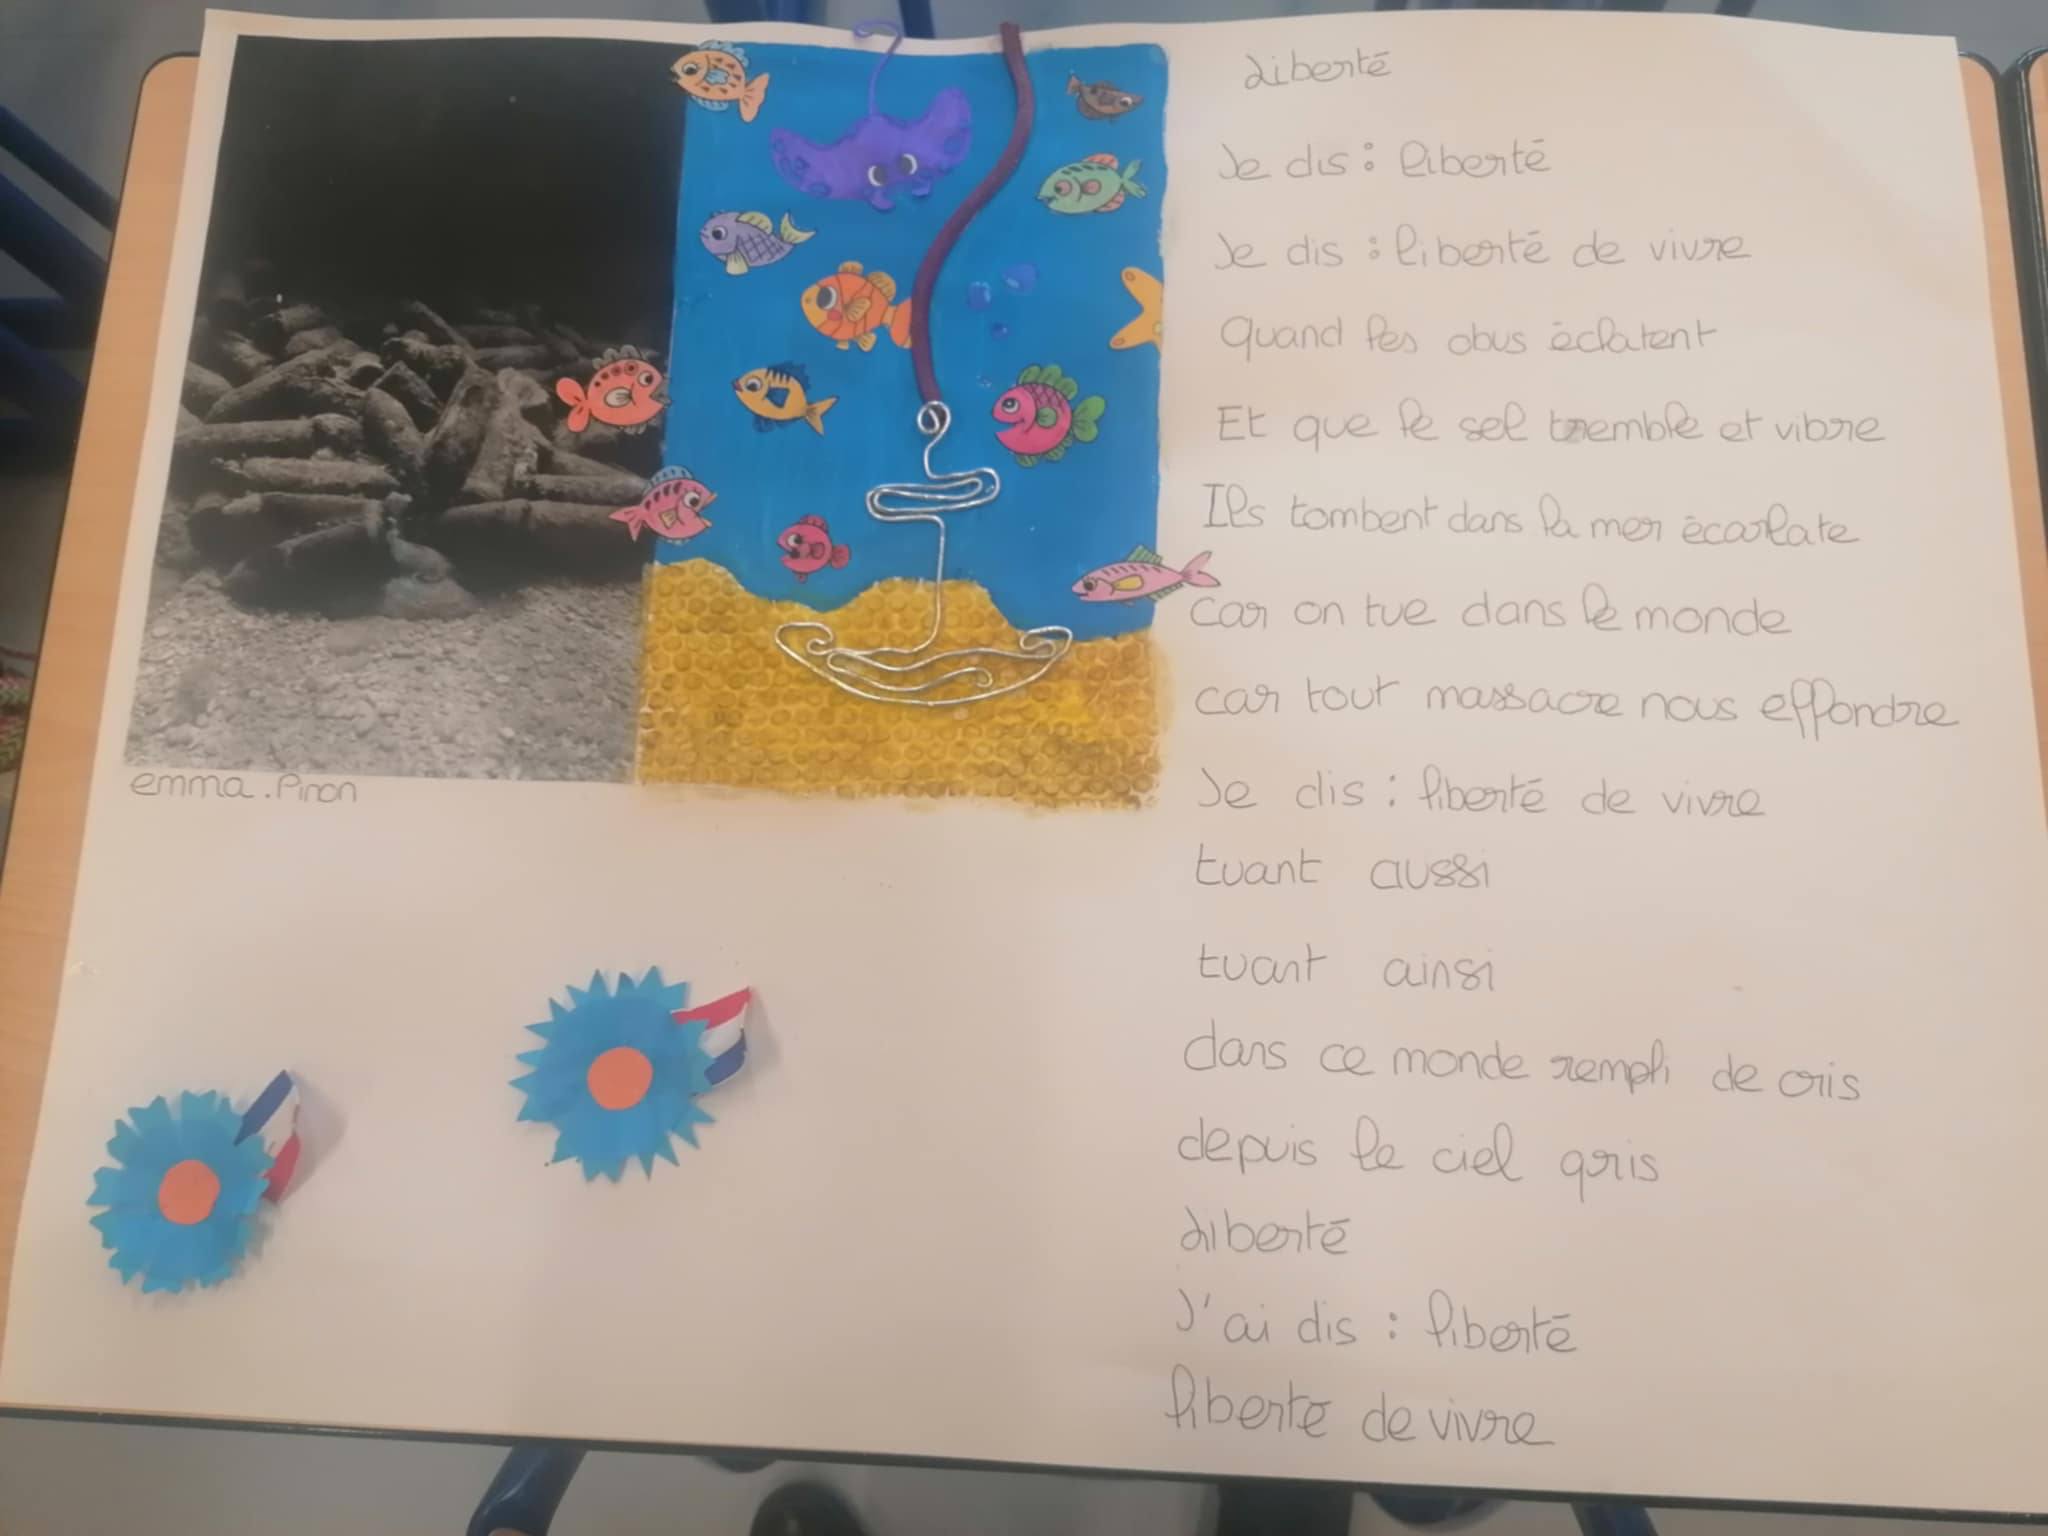 Liberté
Je dis : liberté
Je dis : liberté de vivre
Quand les obus éclatent
Et que le sel tremble et vibre
Ils tombent dans la mer écarlate
car on tue dans le monde
car tout massacre nous effondre
Je dis : liberté de vivre
tuant aussi
tuant ainsi
dans ce monde rempli de cris
depuis le ciel gris
Liberté
J'ai dis : liberté
liberté de vivre
emma.Pinon